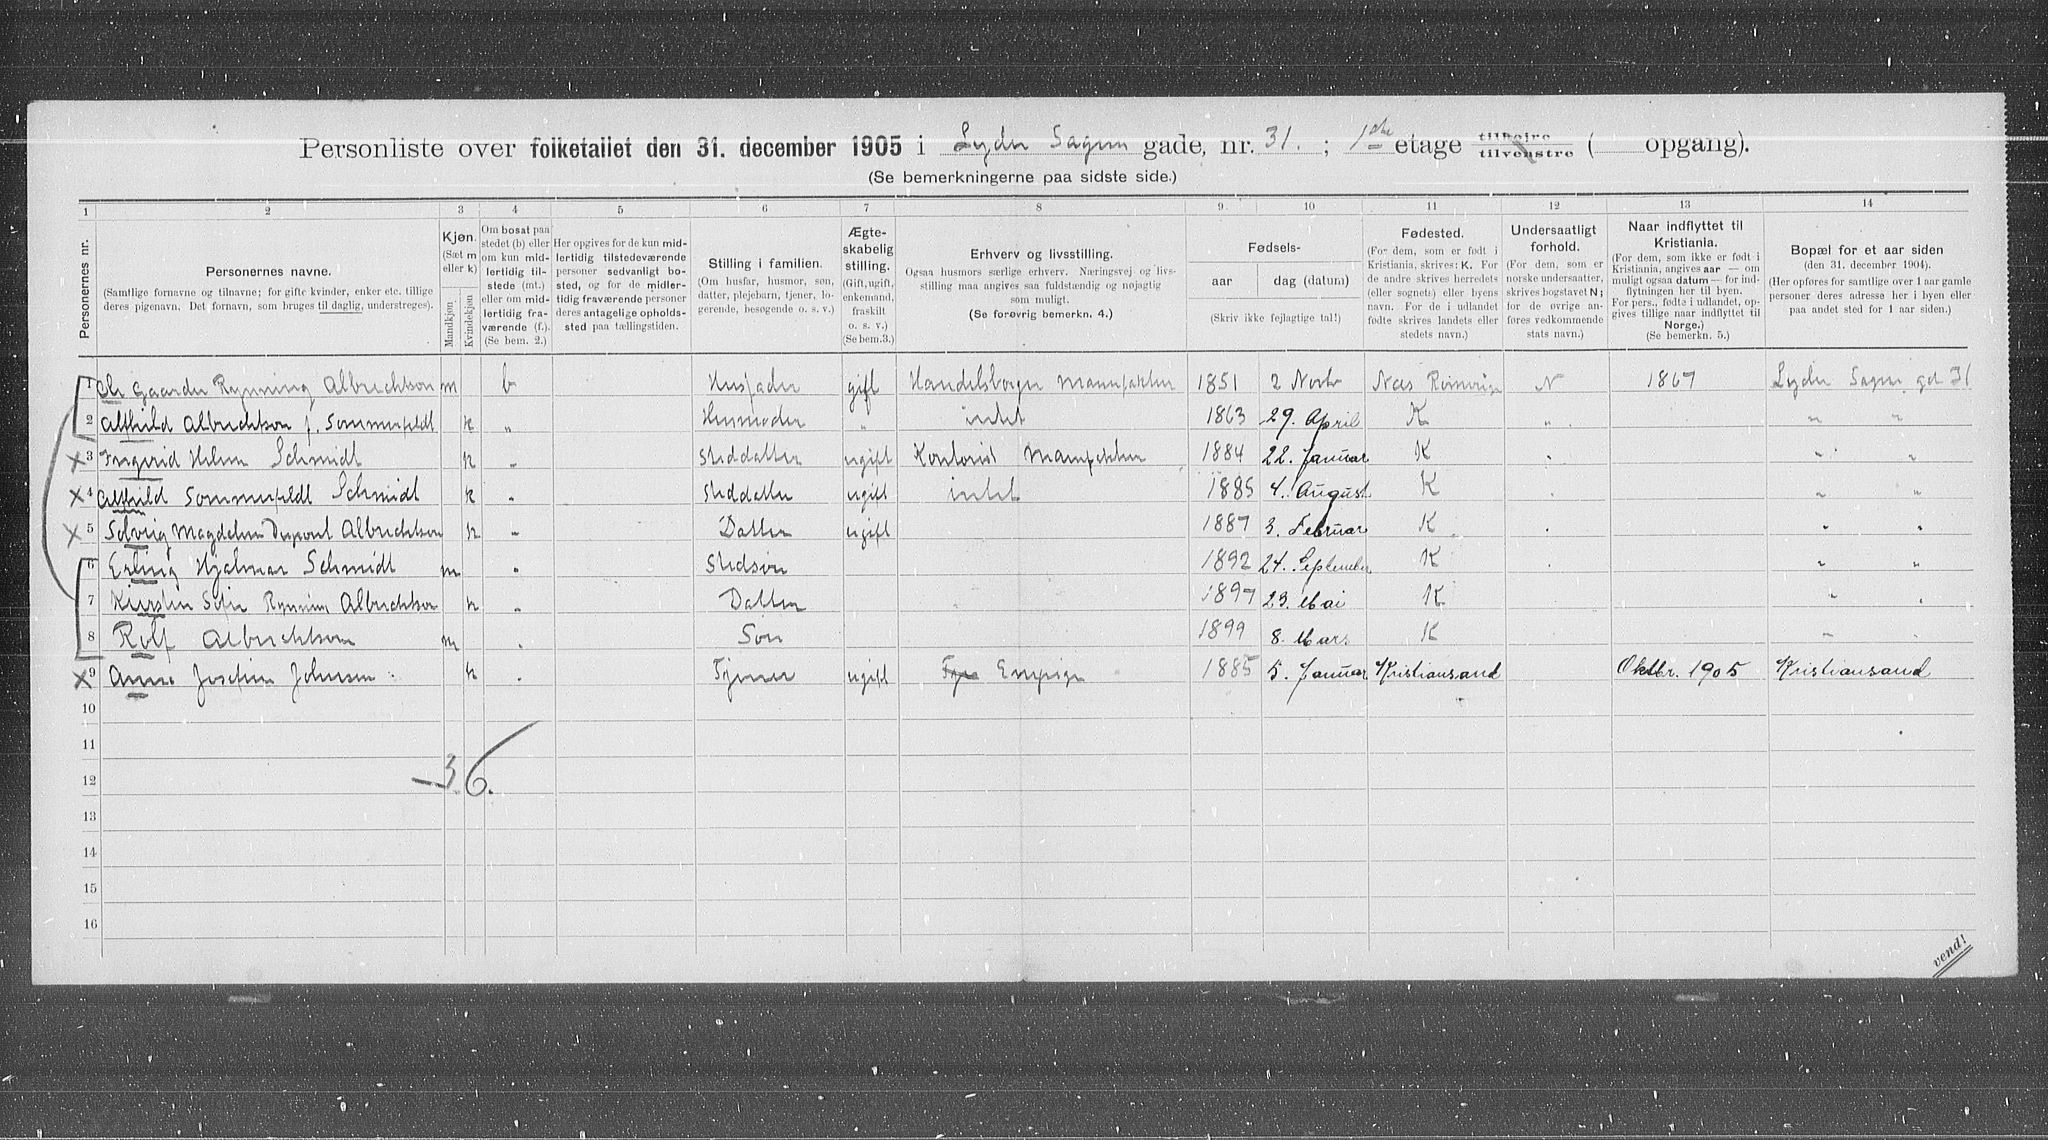 Personliste over folketallet den 31. december 1905 i Lyder Sagens gade, nr. 31. ; 1ste etage tilhøire tilvenstre ( opgang).
(Se bemerkningerne paa sidste side.)
1 2 3 4 5 6 7 8 9. 10 11 12 13 14
Personernes nr.
Personernes navne.
(Samtlige fornavne og tilnavne; for gifte kvinder, enker etc. tillige
deres pigenavn. Det fornavn, som bruges til daglig, understreges).
Kjøn.
(Sæt m
eller k)
Mandkjøn
Kvindekjøn
Om bosat paa
stedet (b) eller
om kun mid-
lertidig til-
stede (mt.)
eller om mid-
lertidig fra-
værende (f.).
(Se bem. 2.)
Her opgives for de kun mid-
lertidig tilstedeværende
personer sedvanligt bo-
sted, og for de midler-
tidig fraværende personer
deres antagelige opholds-
sted paa tællingstiden.
Stilling i familien.
(Om husfar, husmor, søn,
datter, plejebarn, tjener, lo-
gerende, besøgende o. s. v.)
Ægte-
skabelig
stilling.
(Gift, ugift,
enkemand,
fraskilt
o. s. v.)
(Se bem. 3.)
Erhverv og livsstilling.
Ogsaa husmors særlige erhverv. Næringsvej og livs-
stilling maa angives saa fuldstændig og nøjagtig
som muligt.
(Se forøvrig bemerkn. 4.)
Fødsels-
aar dag (datum)
(Skriv ikke fejlagtige tal!)
Fødested.
(For dem, som er født i
Kristiania, skrives: K. For
de andre skrives herredets
(eller sognets) eller byens
navn. For de i udlandet
fødte skrives landets eller
stedets navn.)
Undersaatligt
forhold.
(For dem, som er
norske undersaatter,
skrives bogstavet N;
for de øvrige an-
føres vedkommende
stats navn.)
Naar indflyttet til
Kristiania.
(For dem, som ikke er født i
Kristiania, angives aar — om
muligt ogsaa datum — for ind-
flytningen her til byen.
For pers., fødte i udlandet, op-
gives tillige naar indflyttet til
Norge.)
(Se bemerkn. 5.)
Bopæl for et aar siden
(den 31. december 1904).
(Her opføres for samtlige over 1 aar gamle
personer deres adresse her i byen eller
paa andet sted for 1 aar siden.)
1 Chr Gaarder Rynning Albrechtson m b Husfader gift Handelsborger Manufaktur 1851 2 Novbr Næs Romerike N 1867 Lyder Sagens gd 31
2 Alfhild Albrechtson f. Sommerfeldt k „ Husmoder „ intet 1863 29. April K „ „ „
3 Ingerid Helene Schmidt k „ Steddatter ugift Kontorist Manufaktur 1884 22. Januar K „ „
4 Alfhild Sommerfeldt Schmidt k „ Steddatter ugift intet 1885 4. August K „ „ „
5 Solveig Magdalene Albrechtson k „ Datter ugift 1887 3. Februar K „ „ „
6 Erling Hjalmar Schmidt m „ Stedsøn 1892 24. September K „ „ „
7 Kirsten Sofie Rynning Albrechtson k „ Datter 1897 23. Mai K „ „
8 Rolf Albrechtson m „ Søn 1899 8. Mars K „ „
9 Anna Josefine Johnsen k „ Tjener ugift Enepige 1885 5. Januar Kristiansand Oktbr. 1905 Kristiansand
10
11
12 3 6.
13
14
15
16
vend!